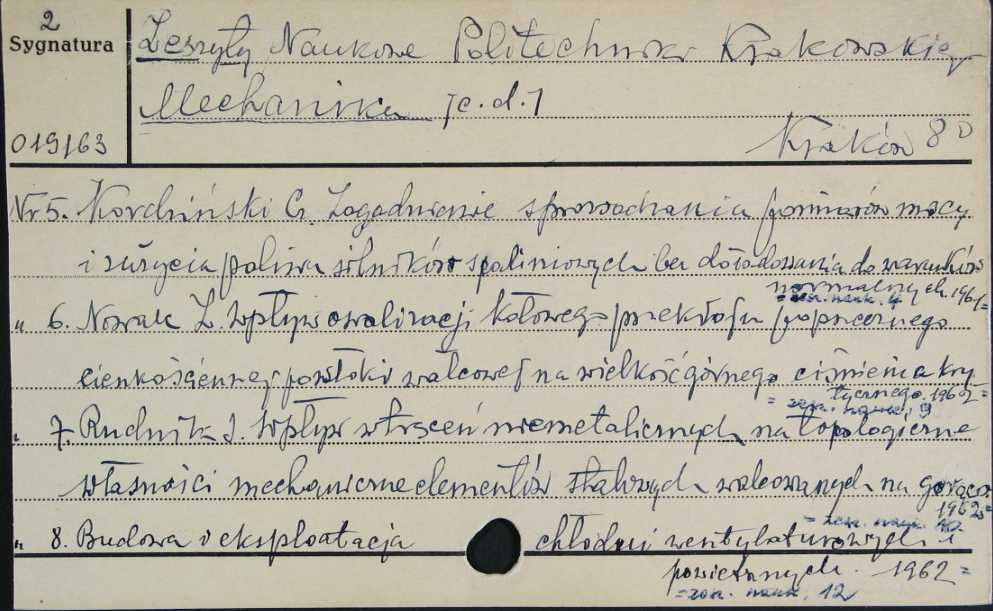 2
Sygnatura
019/63
Zeszyty Naukowe Politechniki Krakowskiej
Mechanika /c.d./
Kraków 8°
Nr 5. Kordziński C. Zagadnienie sprowadzania pomiarów mocy
i zużycia paliwa silników spalinowych bez doładowania do warunków
normalnych. 1961=
= zesz. nauk. 4
" 6. Nowak Z. Wpływ owalizacji kołowego przekroju poprzecznego
cienkościennej powłoki walcowej na wielkość górnego ciśnienia kry
tycznego. 1962=
= zesz. nauk. 9
" 7. Rudnik S. Wpływ wtrąceń niemetalicznych na topologiczne
własności mechaniczne elementów stalowych walcowanych na gorąco.
1962=
= zesz. nauk. 10
" 8. Budowa i eksploatacja chłodni wentylatorowych i
powietrznych. 1962=
= zesz. nauk. 12